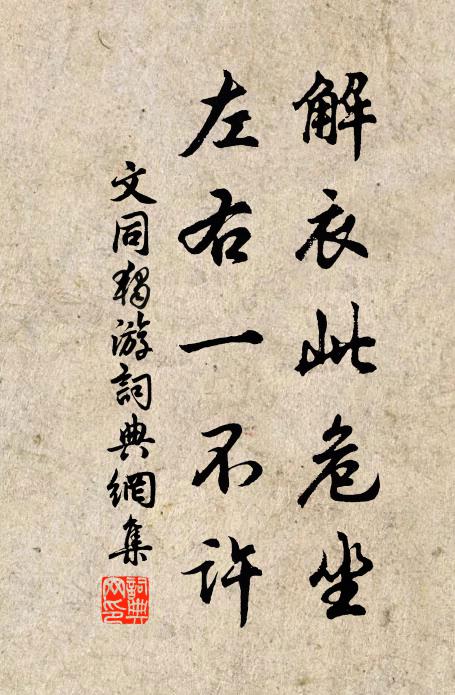 解衣此危坐
左右一不許
文同獨游詞典網集
詞典網印